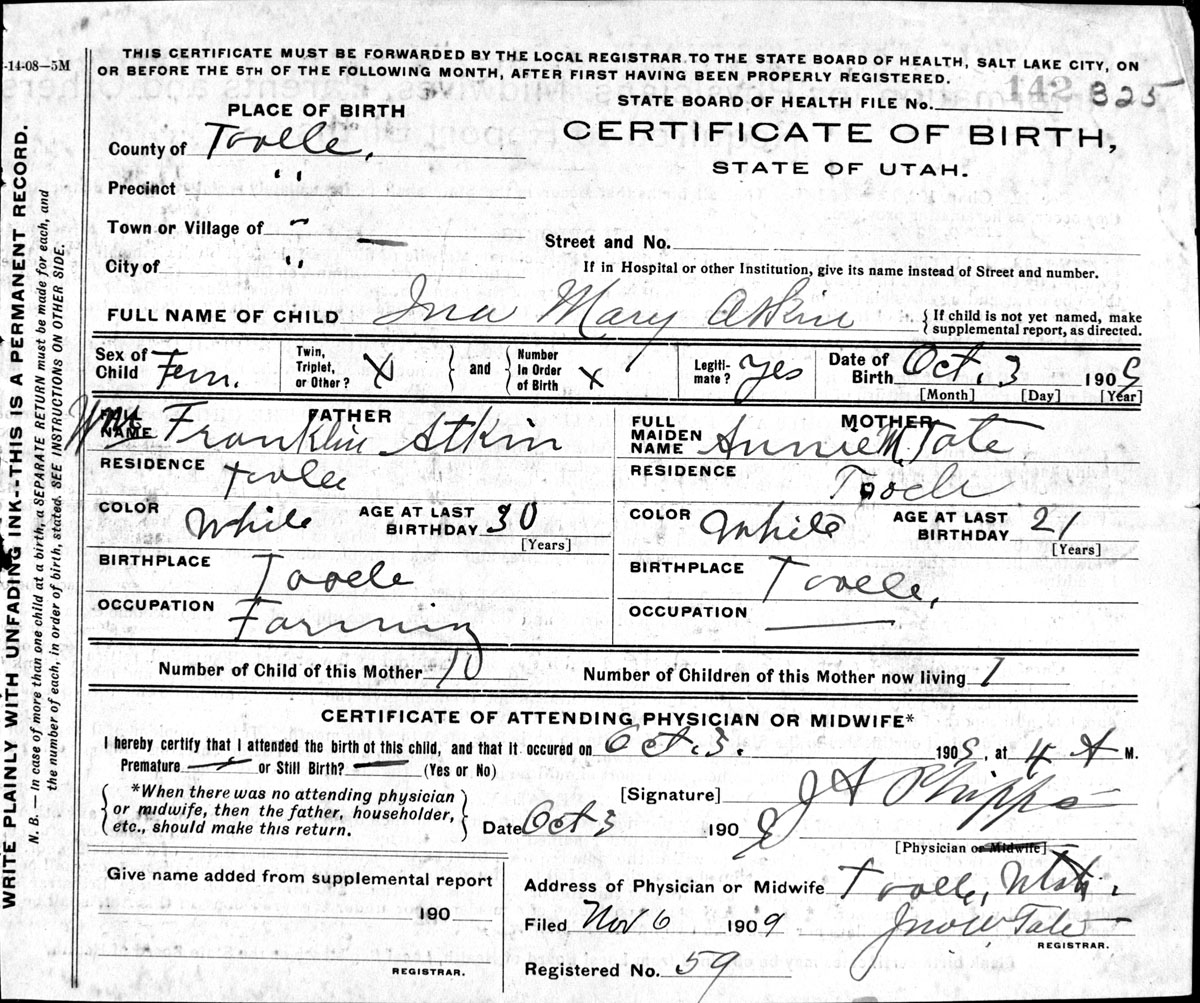 -14-08—5M
THIS CERTIFICATE MUST BE FORWARDED BY THE LOCAL REGISTRAR TO THE STATE BOARD OF HEALTH, SALT LAKE CITY, ON
OR BEFORE THE 5TH OF THE FOLLOWING MONTH, AFTER FIRST HAVING BEEN PROPERLY REGISTERED.
STATE BOARD OF HEALTH FILE No. 142 325
PLACE OF BIRTH
CERTIFICATE OF BIRTH,
STATE OF UTAH.
County of Tooele,
Precinct "
Town or Village of "
Street and No.
City of "
If in Hospital or other Institution, give its name instead of Street and number.
FULL NAME OF CHILD Ina Mary Atkin
{ If child is not yet named, make
supplemental report, as directed.
Sex of Child Fem.
Twin, Triplet, or Other? X } and { Number In Order of Birth x
Legiti- mate? yes
Date of Birth Oct. 3 1909
[Month] [Day] [Year]
FATHER
FULL NAME Wm Franklin Atkin
RESIDENCE Tooele
COLOR White AGE AT LAST BIRTHDAY 30
[Years]
BIRTHPLACE Tooele
OCCUPATION Farming
MOTHER
FULL MAIDEN NAME Annie M. Tate
RESIDENCE Tooele
COLOR White AGE AT LAST BIRTHDAY 21
[Years]
BIRTHPLACE Tooele,
OCCUPATION
Number of Child of this Mother
Number of Children of this Mother now living 1
CERTIFICATE OF ATTENDING PHYSICIAN OR MIDWIFE*
I hereby certify that I attended the birth of this child, and that it occured on Oct. 3. 1909, at 4 A M.
Premature — or Still Birth? — (Yes or No)
{ *When there was no attending physician
or midwife, then the father, householder,
etc., should make this return. }
[Signature] J A Phipps
Date Oct 3 190
[Physician or Midwife]
Give name added from supplemental report
190
REGISTRAR.
Address of Physician or Midwife Tooele, Utah.
Filed Nov 6 1909 Jno W Tate
REGISTRAR.
Registered No. 59
WRITE PLAINLY WITH UNFADING INK---THIS IS A PERMANENT RECORD.
N. B. — In case of more than one child at a birth, a SEPARATE RETURN must be made for each, and
the number of each, in order of birth, stated. SEE INSTRUCTIONS ON OTHER SIDE.